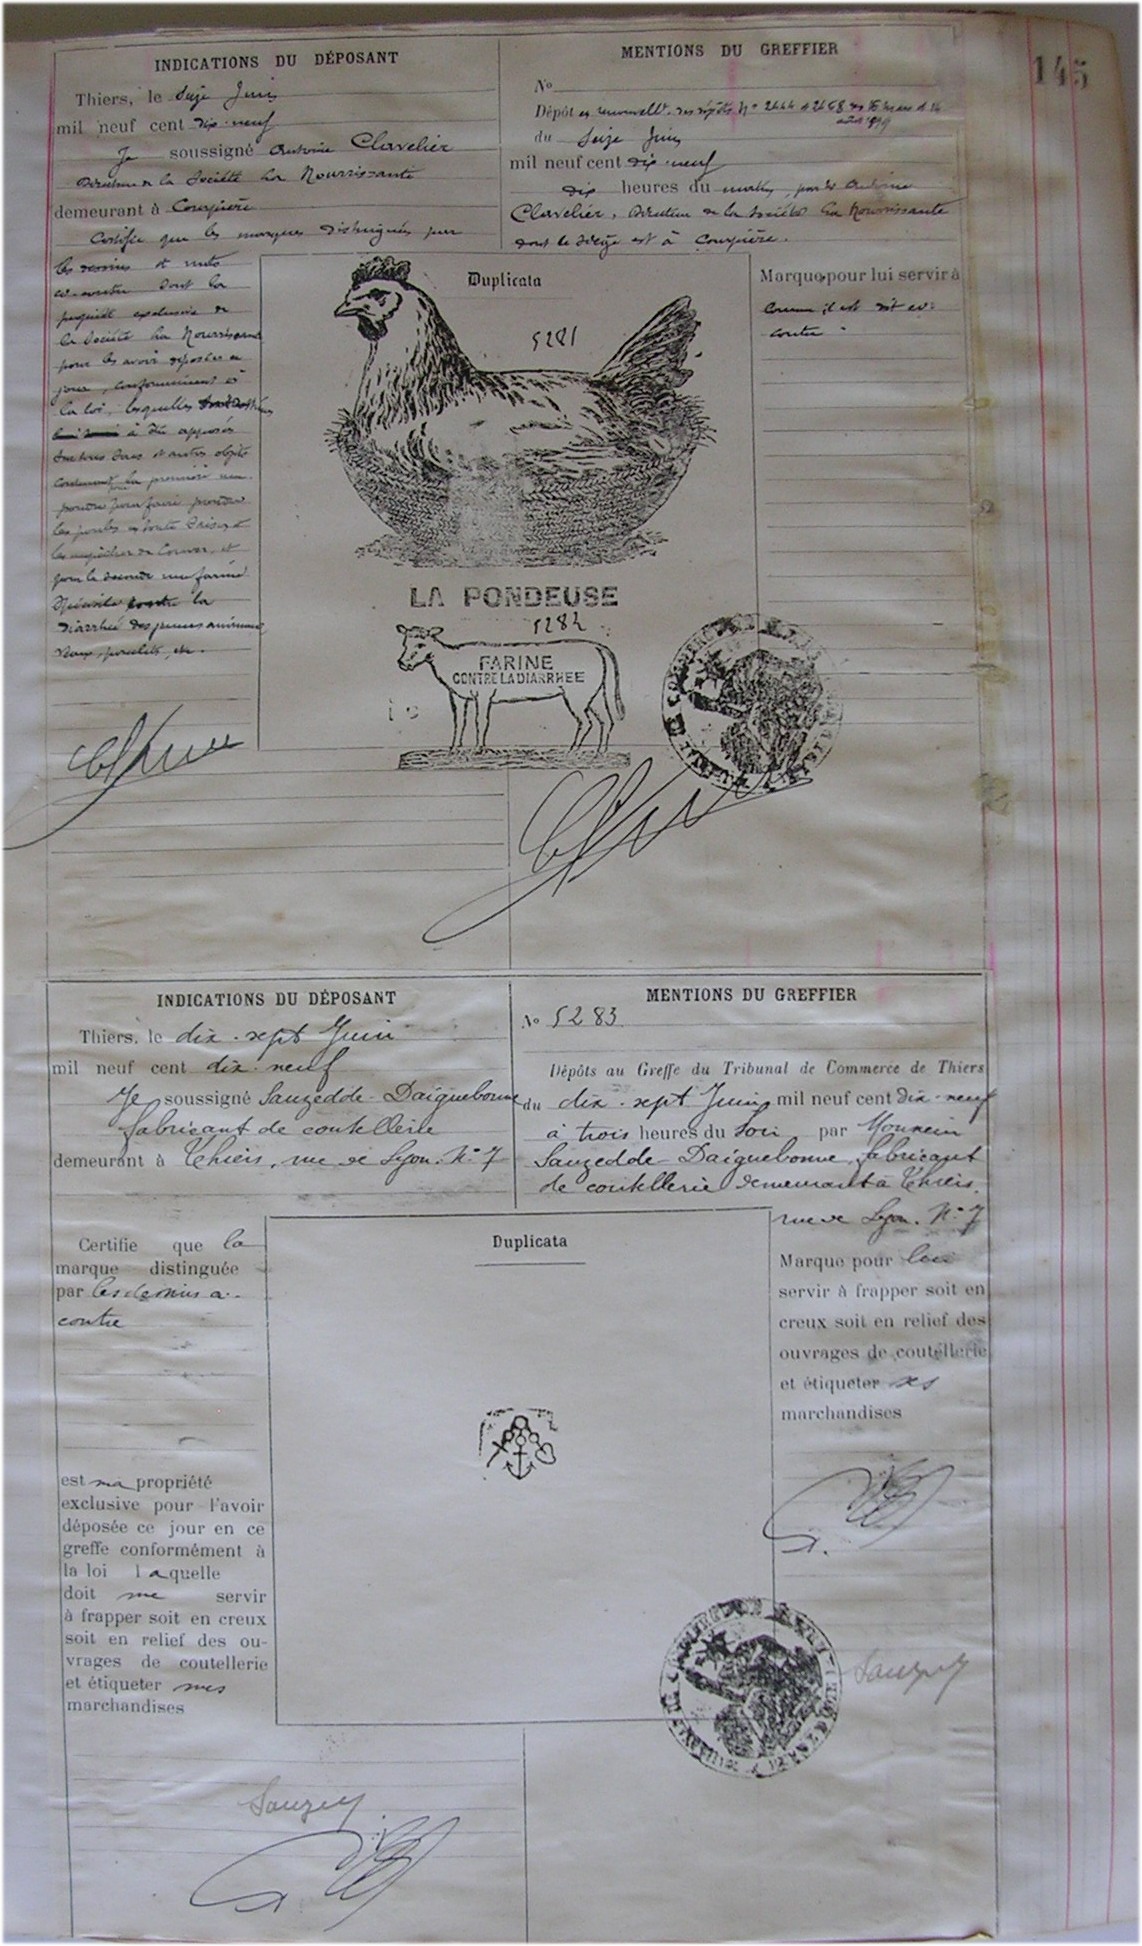 145
INDICATIONS DU DÉPOSANT
Thiers, le Seize Juin
mil neuf cent dix-neuf
Je soussigné Antoine Clavelier
Directeur de la Société La Nourrissante
demeurant à Courpière
Certifie que les marques distinguées par
les dessins et mots
ci-contre sont la
propriété exclusive de
la Société La Nourrissante
pour les avoir déposées ce
jour, conformément à
la loi, lesquelles
à être apposés
sacs et autres objets
contenant la première une
poudre pour faire pondre
les poules en toute saison et
les empêcher de couver, et
pour la seconde une farine
spéciale contre la
diarrhée des jeunes animaux
veaux, porcelets, etc.
MENTIONS DU GREFFIER
No
Dépôt en renouvellt. des dépôts No 2444 et 2458 des 16 mars et 14
du Seize Juin
mil neuf cent dix-neuf
dix heures du matin, par Mr Antoine
Clavelier, Directeur de la Société La Nourrissante
dont le siège est à Courpière.
Duplicata
5281
LA PONDEUSE
5282
FARINE
CONTRE LA DIARRHEE
Marque pour lui servir à
comme il est dit ci-
contre
INDICATIONS DU DÉPOSANT
Thiers, le dix-sept Juin
mil neuf cent dix-neuf
Je soussigné Sauzedde-Daiguebonne
fabricant de coutellerie
demeurant à Thiers, rue de Lyon. No 7
Certifie que la
marque distinguée
par les dessins ci-
contre
est ma propriété
exclusive pour l'avoir
déposée ce jour en ce
greffe conformément à
la loi laquelle
doit me servir
à frapper soit en creux
soit en relief des ou-
vrages de coutellerie
et étiqueter mes
marchandises
MENTIONS DU GREFFIER
No 5283
Dépôts au Greffe du Tribunal de Commerce de Thiers
du dix-sept Juin mil neuf cent dix-neuf
à trois heures du soir par Monsieur
Sauzedde-Daiguebonne, fabricant
de coutellerie demeurant à Thiers,
rue de Lyon. No 7
Duplicata
Marque pour lui
servir à frapper soit en
creux soit en relief des
ouvrages de coutellerie
et étiqueter ses
marchandises